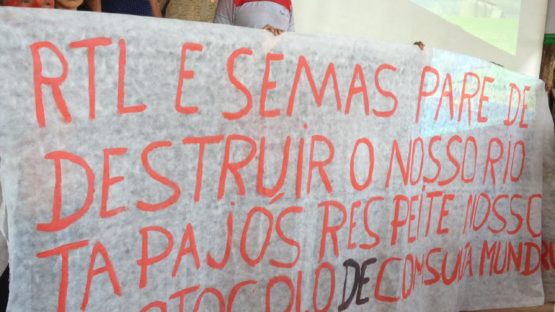 RTL E SEMAS PARE DE
DESTRUIR O NOSSO RIO
TAPAJÓS RESPEITE NOSSO
PROTOCOLO DE CONSULTA MUNDRU